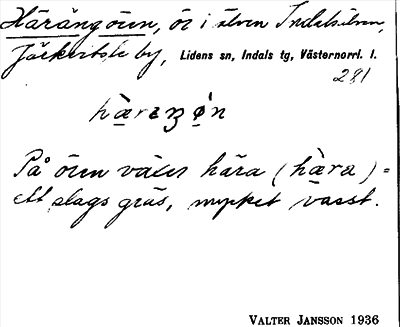 Härängören, ör i älven Indalsälven,
Järkvitsle by, Lidens sn, Indals tg, Västernorrl. l.
281
På ören växer hära (hæ̀ra) =
ett slags gräs, mycket vasst.
VALTER JANSSON 1936